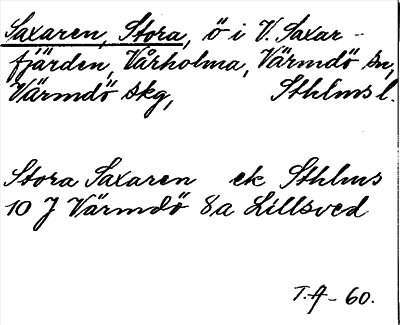 Saxaren, Stora, ö i V. Saxar-
fjärden, Vårholma, Värmdö sn,
Värmdö skg, Sthlms l.
Stora Saxaren ek Sthlms
10 J Värmdö 8a Lillsved
T.A-60.